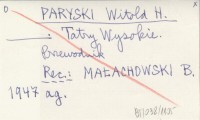 PARYSKI Witold H.
: Tatry Wysokie.
Przewodnik
Rec.: MAŁACHOWSKI B.
1947 ag.